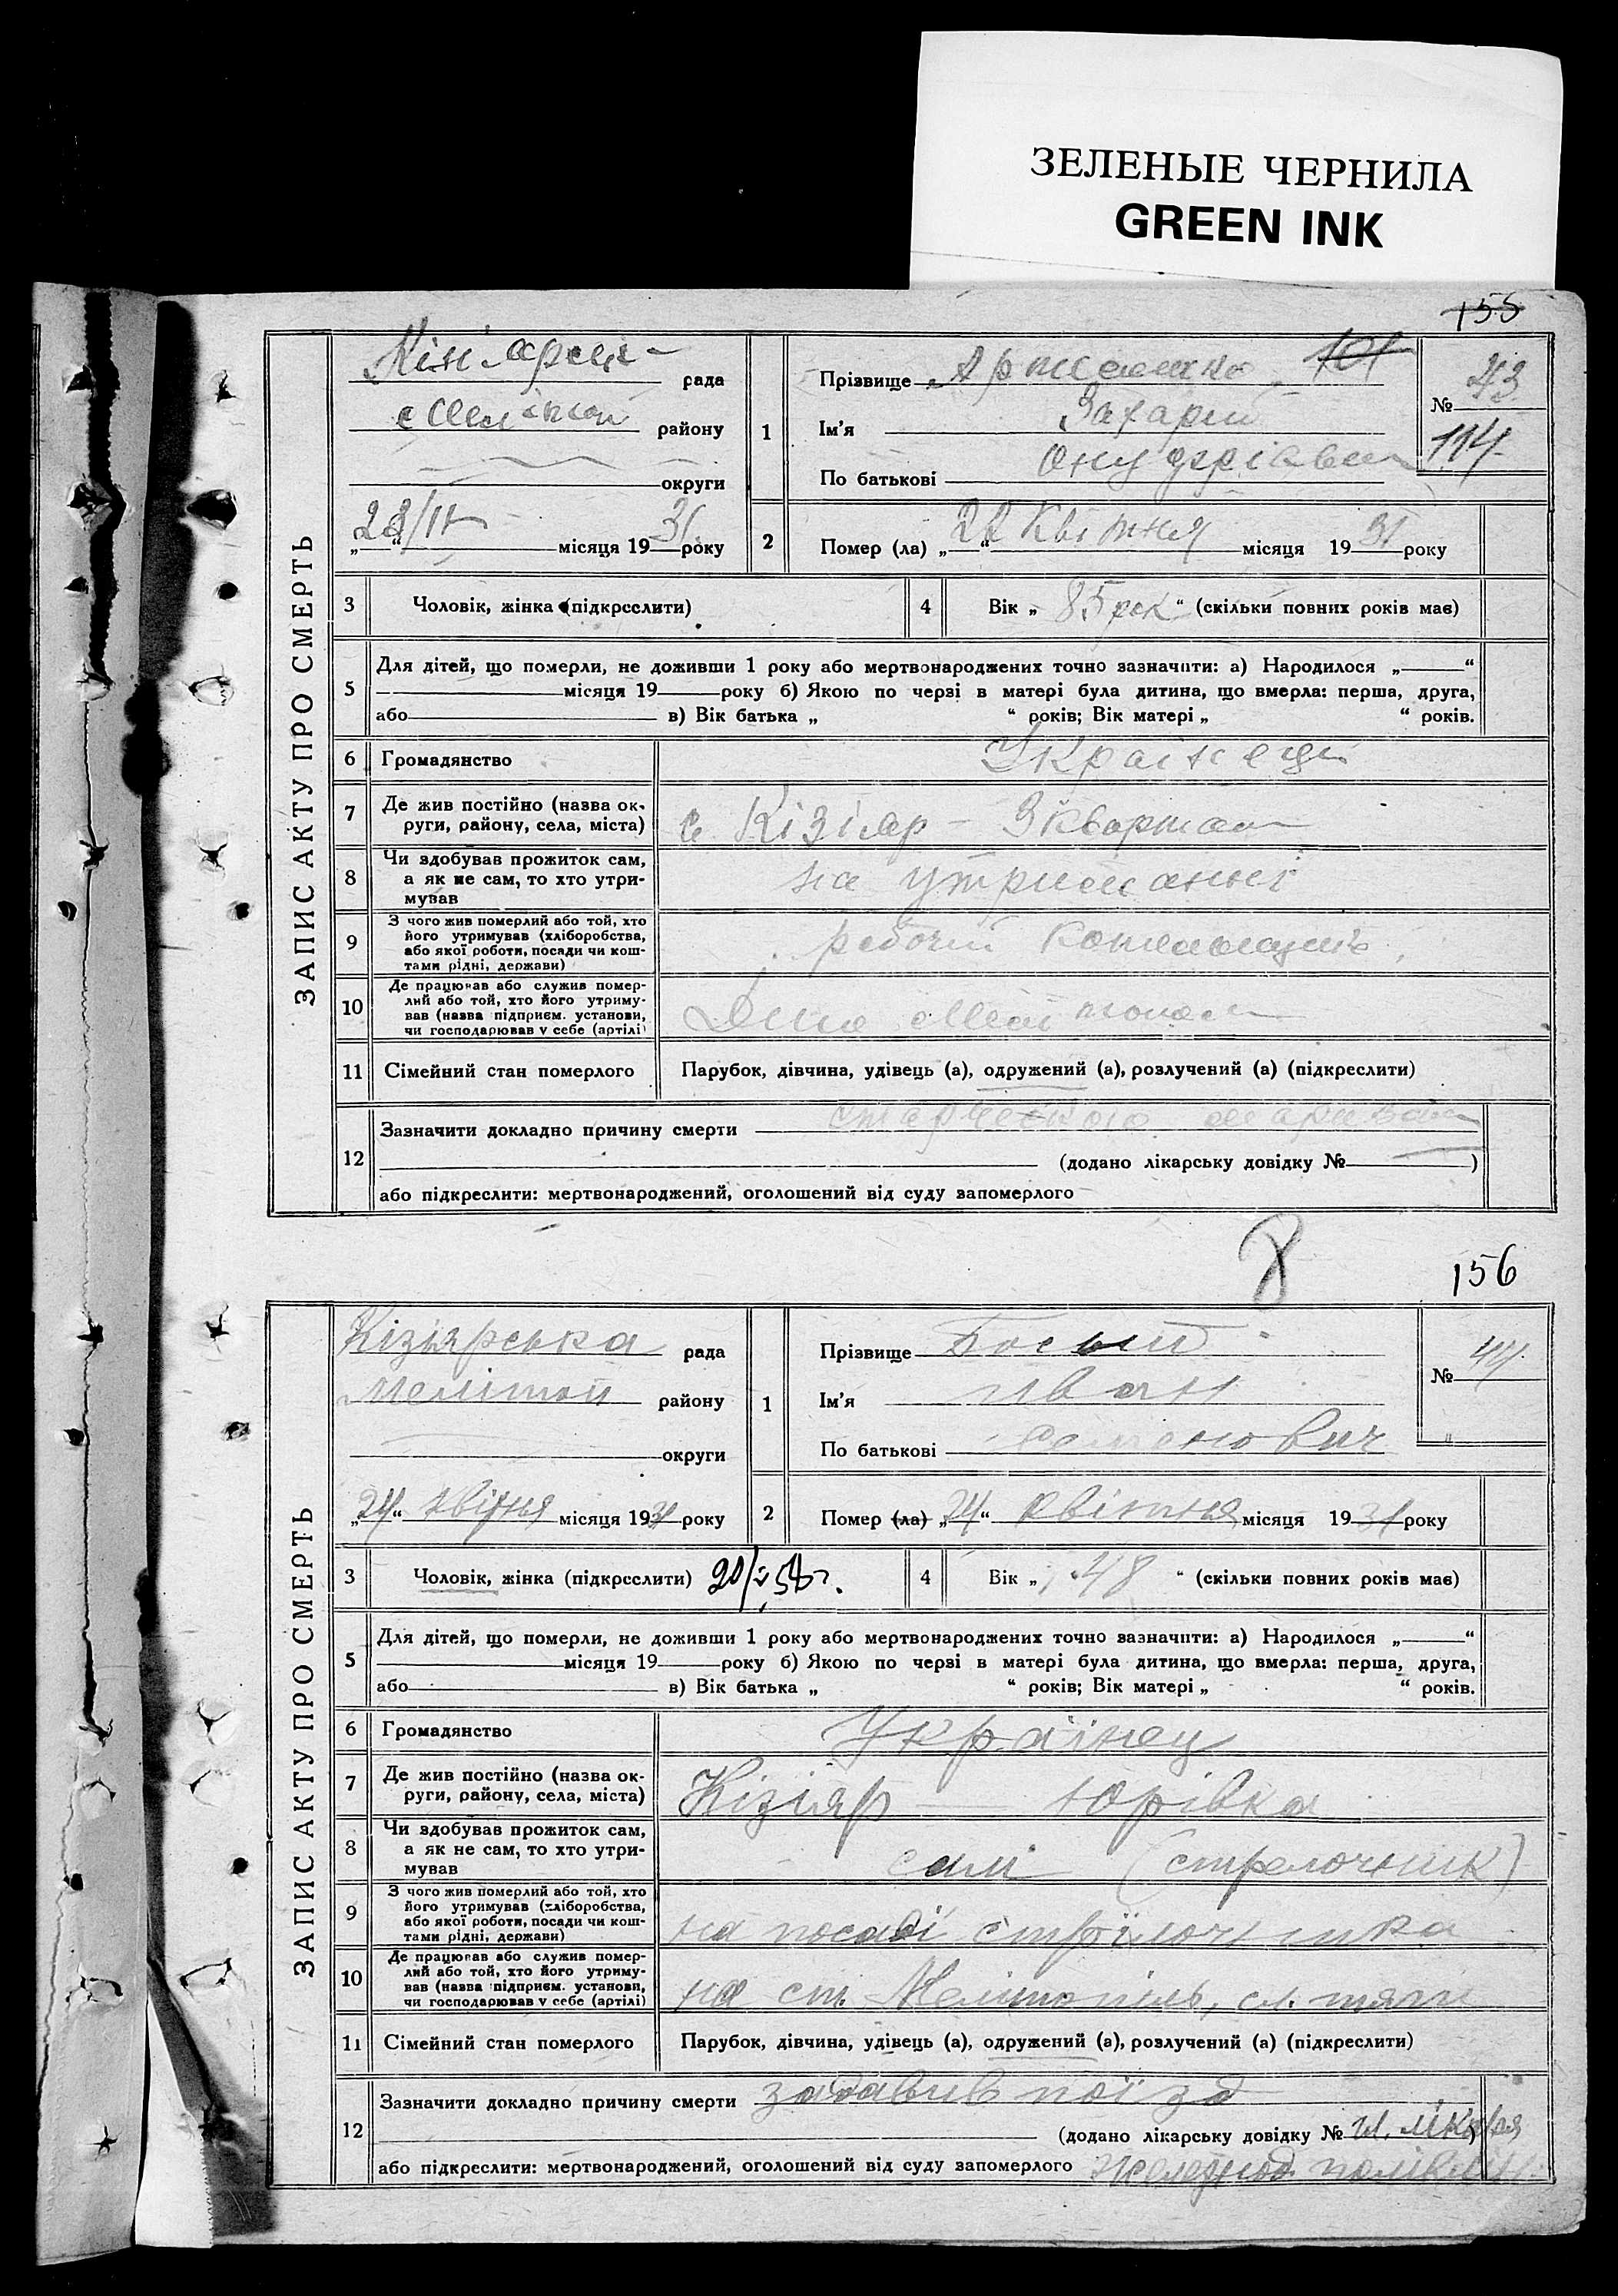 ЗЕЛЕНЫЕ ЧЕРНИЛА
GREEN INK
155
ЗАПИС АКТУ ПРО СМЕРТЬ
рада
району
округи
місяця 19 31 року
1
Прізвище 101
Ім'я Захарий
По батькові
№ 43
114
2
Помер (ла) „22“ Квітня місяця 19 31 року
3 Чоловік, жінка (підкреслити)
4 Вік „ 85 рок “ (скільки повних років має)
5 Для дітей, що померли, не доживши 1 року або мертвонароджених точно зазначити: а) Народилося „ “
місяця 19 року б) Якою по черзі в матері була дитина, що вмерла: перша, друга,
або в) Вік батька „ “ років; Вік матері „ “ років.
6 Громадянство Українець
7 Де жив постійно (назва ок-
руги, району, села, міста) с Кізіяр - 3 квартал
8 Чи здобував прожиток сам,
а як не сам, то хто утри-
мував на утриманні
9 З чого жив померлий або той, хто
його утримував (хліборобства,
або якої роботи, посади чи кош-
тами рідні, держави) рабочий
10 Де працював або служив помер-
лий або той, хто його утриму-
вав (назва підприєм. установи,
чи господарював у себе (артілі) Депо
11 Сімейний стан померлого Парубок, дівчина, удівець (а), одружений (а), розлучений (а) (підкреслити)
12 Зазначити докладно причину смерти
(додано лікарську довідку № )
або підкреслити: мертвонароджений, оголошений від суду запомерлого
156
ЗАПИС АКТУ ПРО СМЕРТЬ
Кізіярська рада
Мелітоп району
округи
„24“ квітня місяця 1931 року
1
Прізвище Босый
Ім'я Иван
По батькові
№ 44
"
2
Помер (ла) „24“ квітня місяця 19 31 року
3 Чоловік, жінка (підкреслити)
4 Вік „ 48 “ (скільки повних років має)
5 Для дітей, що померли, не доживши 1 року або мертвонароджених точно зазначити: а) Народилося „ “
місяця 19 року б) Якою по черзі в матері була дитина, що вмерла: перша, друга,
або в) Вік батька „ “ років; Вік матері „ “ років.
6 Громадянство Українец
7 Де жив постійно (назва ок-
руги, району, села, міста) Кізіяр Юрівка
8 Чи здобував прожиток сам,
а як не сам, то хто утри-
мував сам (стрелочник)
9 З чого жив померлий або той, хто
його утримував (хліборобства,
або якої роботи, посади чи кош-
тами рідні, держави) на посаді стрілочника
10 Де працював або служив помер-
лий або той, хто його утриму-
вав (назва підприєм. установи,
чи господарював у себе (артілі) на ст. Мелітопіль, сл. тяги
11 Сімейний стан померлого Парубок, дівчина, удівець (а), одружений (а), розлучений (а) (підкреслити)
12 Зазначити докладно причину смерти задавив поїзд
(додано лікарську довідку № лікаря)
або підкреслити: мертвонароджений, оголошений від суду запомерлого